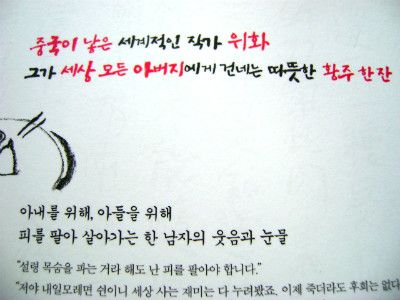 중국이 낳은 세계적인 작가 위화
그가 세상 모든 아버지에게 건네는 따뜻한 황주 한 잔
아내를 위해, 아들을 위해
피를 팔아 살아가는 한 남자의 웃음과 눈물
"설령 목숨을 파는 거라 해도 난 피를 팔아야 합니다."
"저야 내일모레면 쉰이니 세상 사는 재미는 다 누려봤죠. 이제 죽더라도 후회는 없다